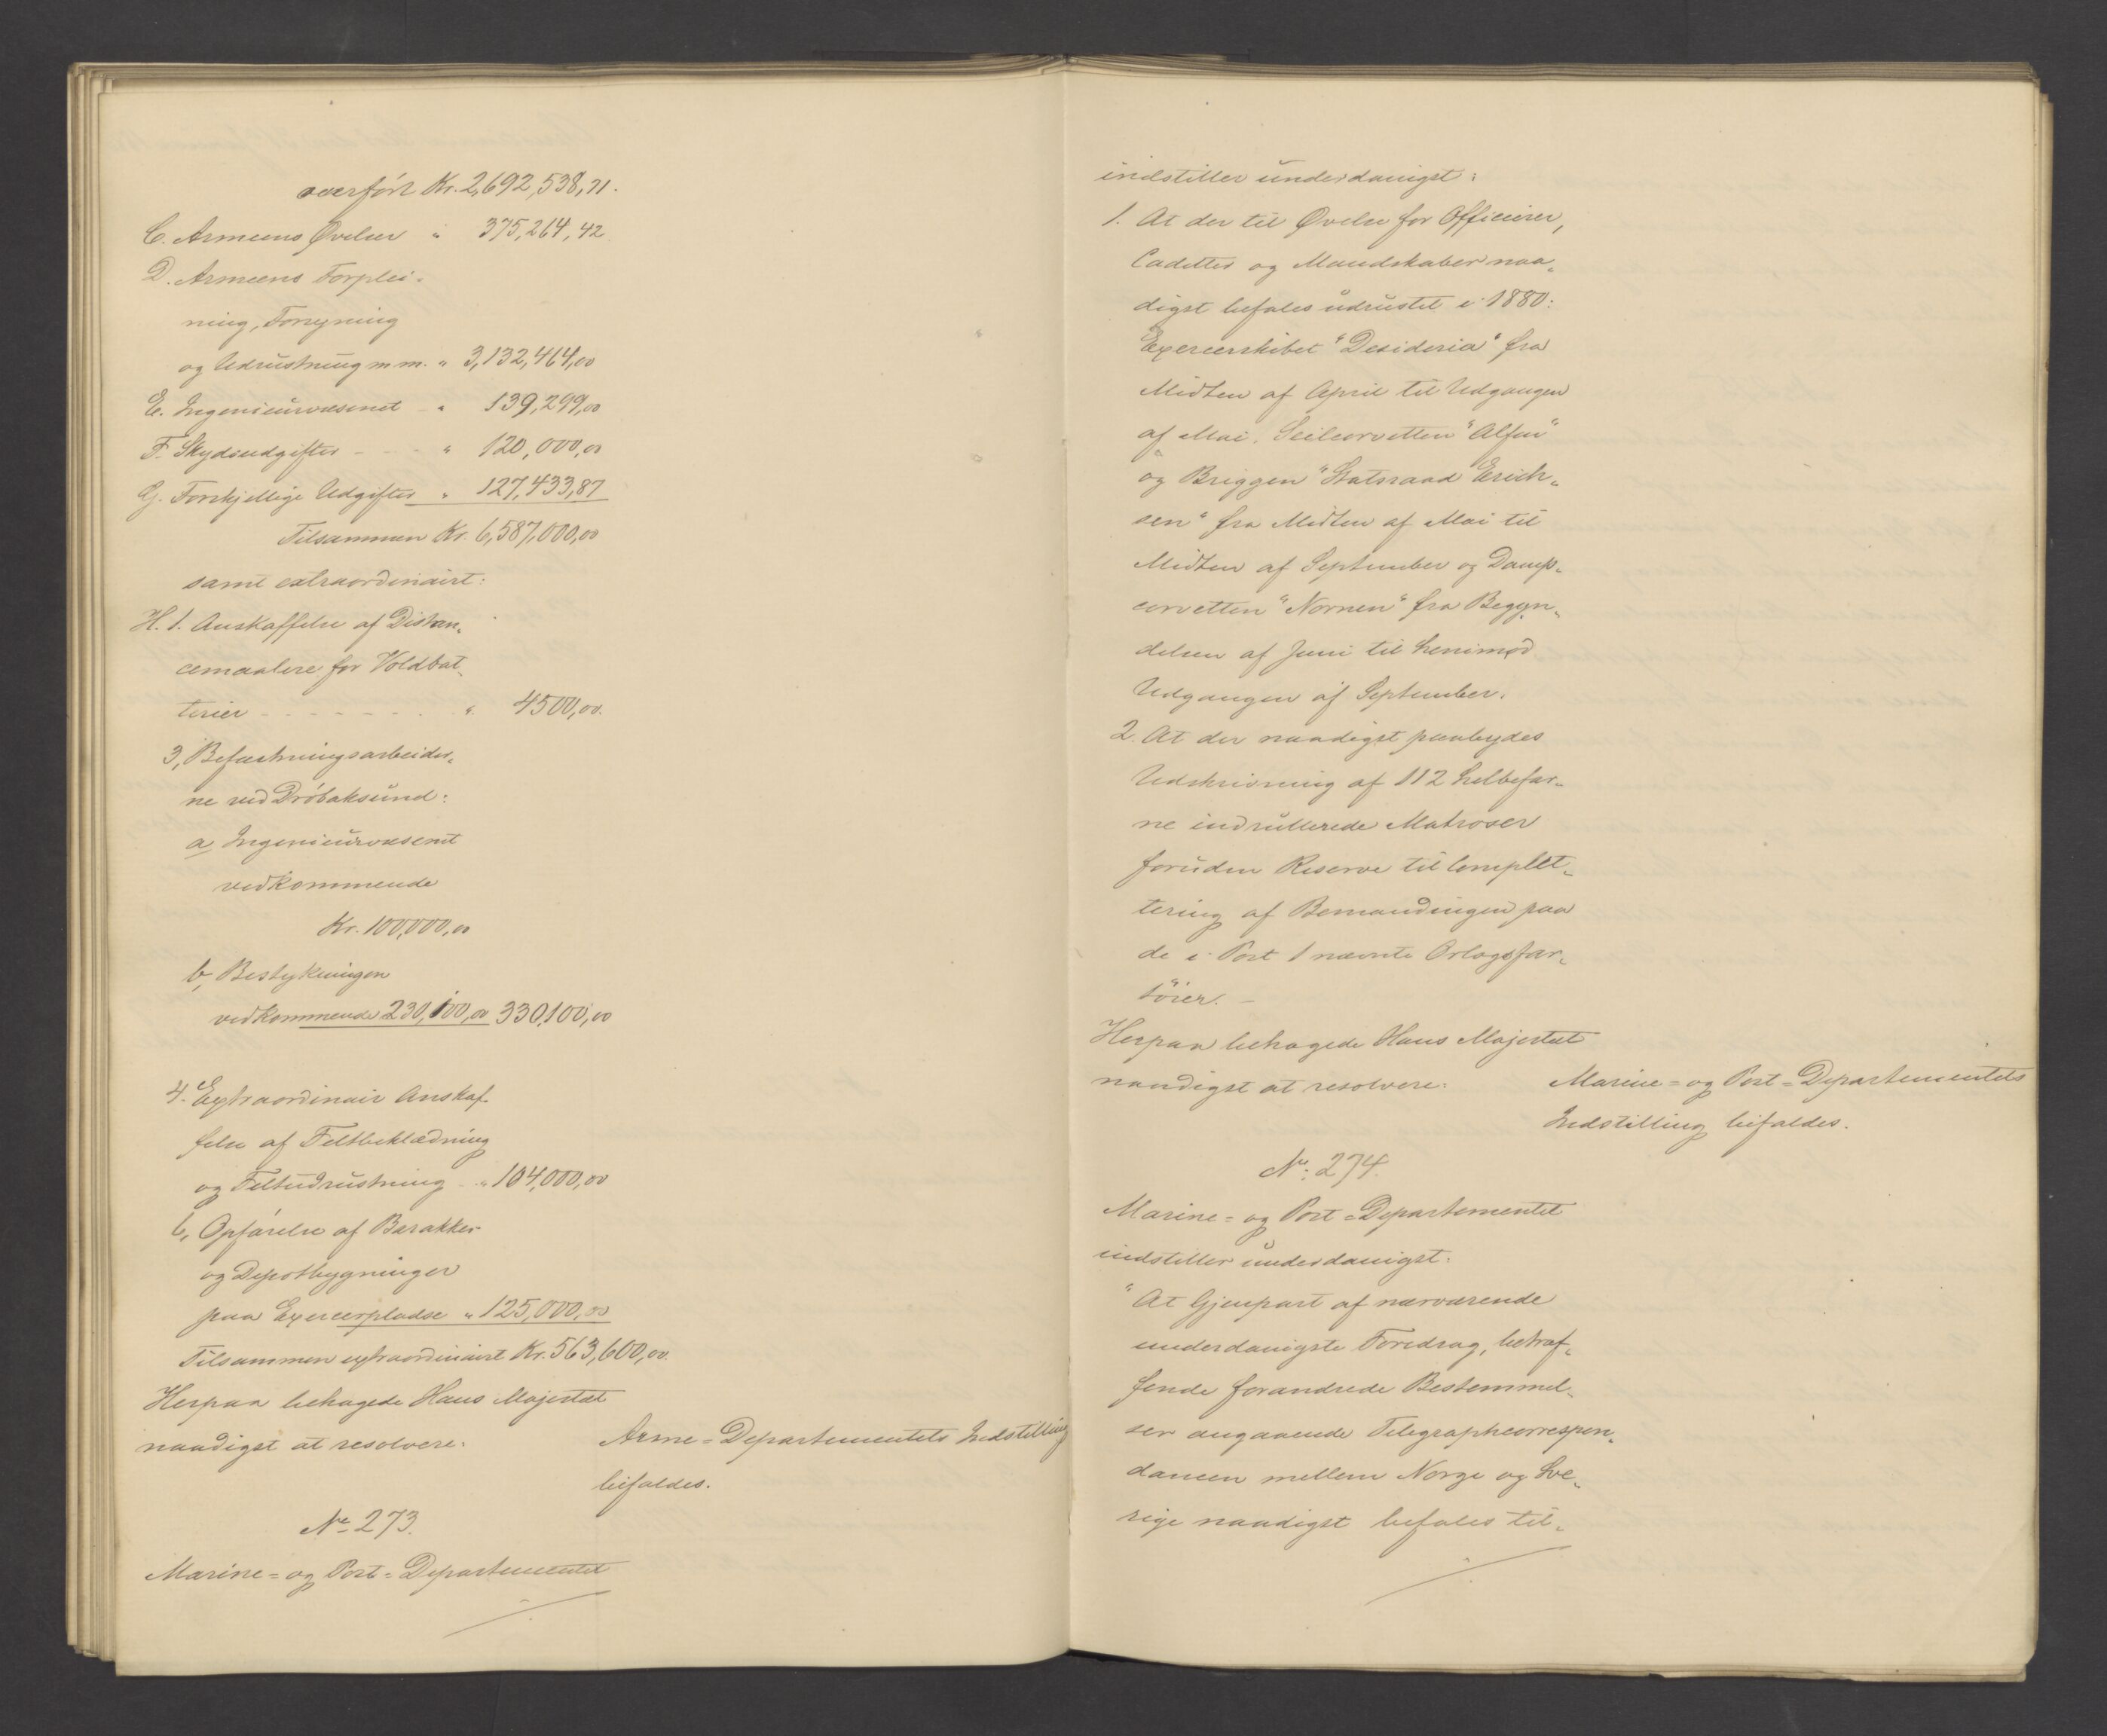 overført Kr. 2,692,538,71.
C. Armeens Øvelser " 375,264,42
D. Armeens Forplei-
ning, Fornyning
og Udrustning m m. " 3,132,464,00
E. Ingenieurvæsenet - " 139,299,00
F. Skydsudgifter - - - " 120,000,00
G. Forskjellige Udgifter " 127,433,87
Tilsammen Kr. 6,587,000,00
samt extraordinairt:
H. 1. Anskaffelse af Distan-
cemaalere for Voldbat-
terier - - - - - - " 4500,00.
3, Befæstningsarbeider-
ne ved Drøbaksund:
a, Ingenieurvæsenet
vedkommende
Kr. 100,000,00
b, Bestykningen
vedkommende 230,100,00 330,100,00
4. Extraordinair Anskaf-
felse af Feltbeklædning
og Feltudrustning - " 104,000,00
6, Opførelse af Barakker
og Depotbygninger
paa Exercerpladse " 125,000,00
Tilsammen extraordinairt Kr. 563,600,00.
Herpaa behagede Hans Majestæt
naadigst at resolvere:
Arme-Departementets Indstilling
bifaldes.
No 273.
Marine- og Post-Departementet
indstiller underdanigst:
1. At der til Øvelse for Officierer,
Cadetter og Mandskaber naa-
digst befales udrustet i 1880:
Exercerskibet "Desideria" fra
Midten af April til Udgangen
af Mai, Seilcorvetten "Alfen"
og Briggen "Statsraad Erich-
sen" fra Midten af Mai til
Midten af September og Damp-
corvetten "Nornen" fra Begyn-
delsen af Juni til henimod
Udgangen af September.
2. At der naadigst paabydes
Udskrivning af 112 helbefar-
ne indrullerede Matroser
foruden Reserve til Complet-
tering af Bemandingen paa
de i Post 1 nævnte Orlogsfar-
töier. -
Herpaa behagede Hans Majestæt
naadigst at resolvere:
Marine- og Post-Departementets
Indstilling bifaldes.
No: 274.
Marine- og Post-Departementet
indstiller underdanigst:
"At Gjenpart af nærværende
underdanigste Foredrag, betræf-
fende forandrede Bestemmel-
ser angaaende Telegraphcorrespon-
dancen mellem Norge og Sve-
rige naadigst befales til-